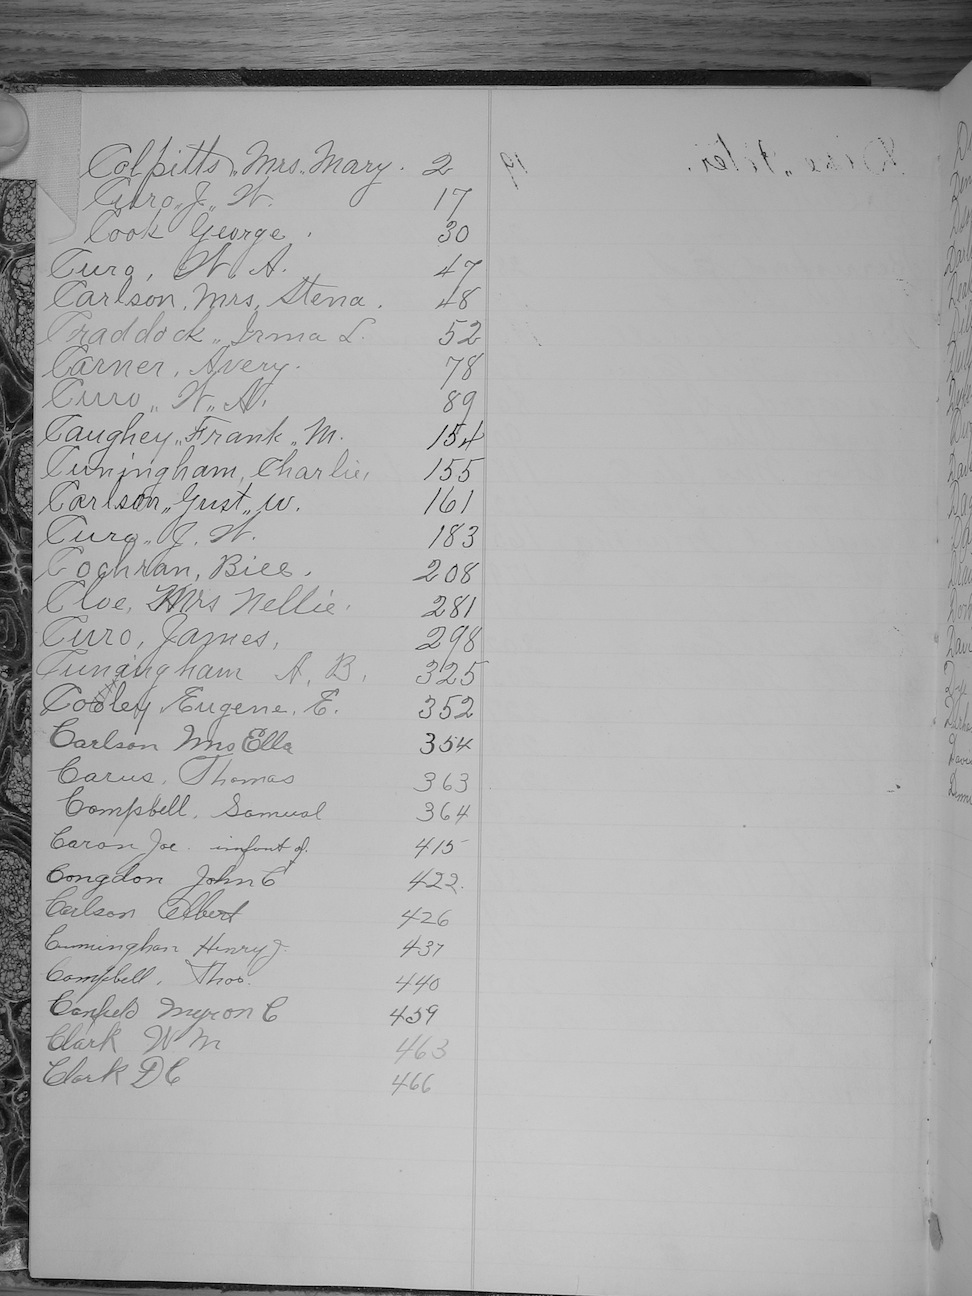 Colpitts, Mrs. Mary. 2
Curo, J. W. 17
Cook George. 30
Curo, W. A. 47
Carlson, Mrs. Stena. 48
Craddock, Irma L. 52
Carner, Avery. 78
Curo, W. A. 89
Caughey, Frank, M. 154
Cuningham, Charlie, 155
Carlson, Gust, W. 161
Curo, J. W. 183
Cochran, Bice. 208
Cloe, Mrs Nellie. 281
Curo, James, 298
Cuningham A. B. 325
Cooley, Eugene. E. 352
Carlson Mrs Ella 354
Carus, Thomas 363
Campbell, Samual 364
Caron Joe. infant of. 415
Congdon John C 422.
Carlson Elbert 426
Cunningham Henry J. 437
Campbell, Thos. 440
Canfield Myron C 459
Clark W M 463
Clark D C 466